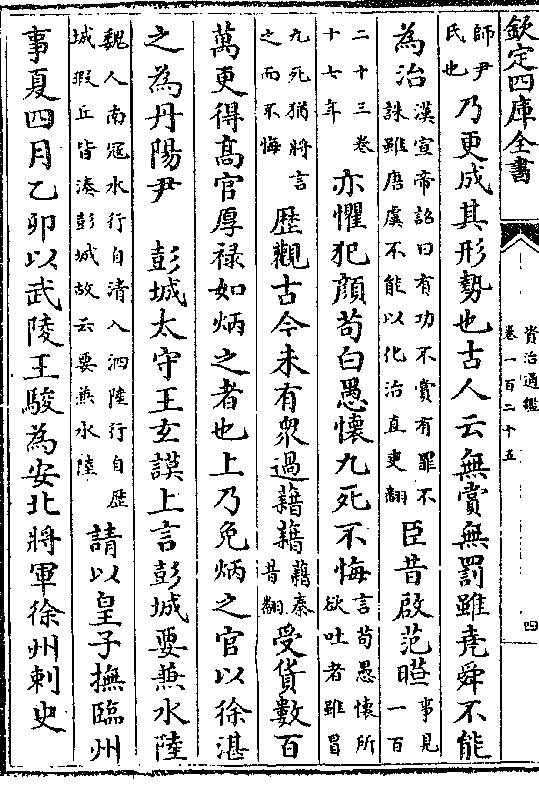 欽定四庫全書
資治通鑑
卷一百二十五
四
師尹氏也乃更成其形勢也古人云無賞無罰雖堯舜不能
為治漢宣帝詔曰有功不賞有罪不誅雖唐虞不能以化治直吏翻臣昔啟范瞱事見一百
二十三卷十七年亦懼犯顔苟白愚懷九死不悔言苟愚懷所欲吐者雖冒
九死猶將言之而不悔歴觀古今未有衆過藉藉藉秦昔翻受貨數百
萬更得高官厚禄如炳之者也上乃免炳之官以徐湛
之為丹陽尹　彭城太守王玄謨上言彭城要兼水陸
魏人南寇水行自清入泗陸行自歴城瑕丘皆湊彭城故云要兼水陸請以皇子撫臨州
事夏四月乙卯以武陵王駿為安北將軍徐州刺史